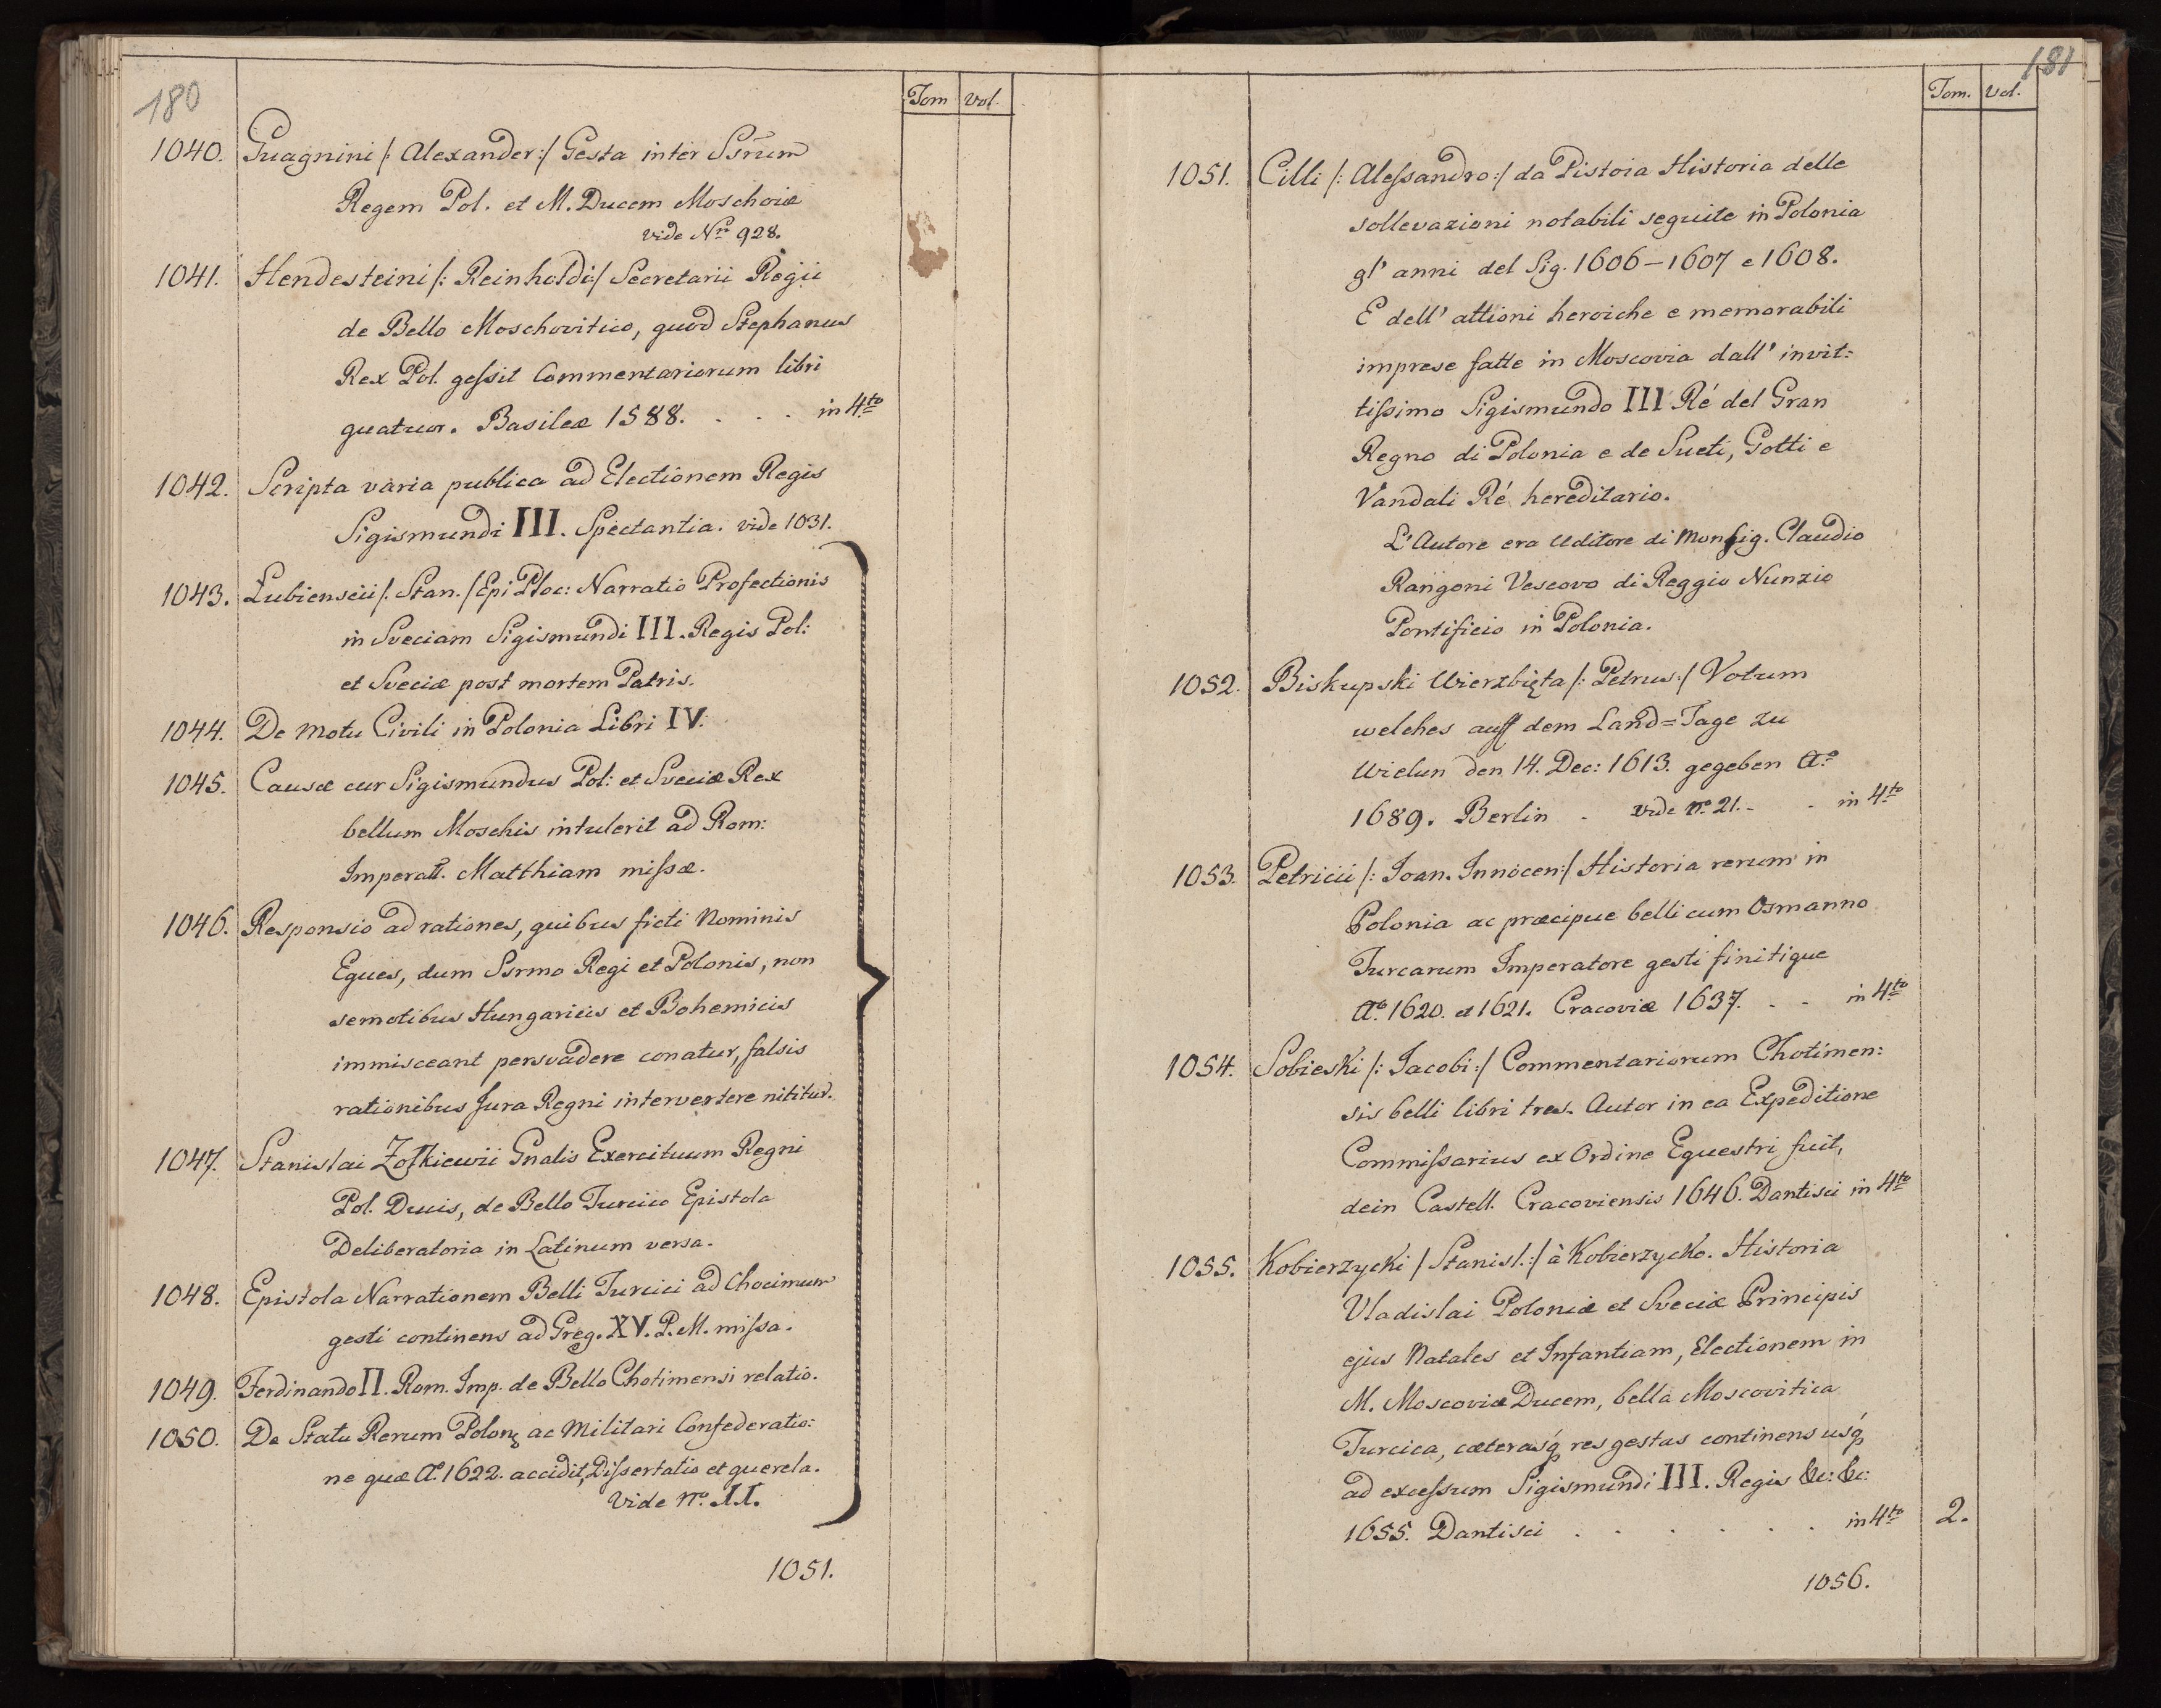 180
Tom Vol.
1040. Guagnini /: Alexander :/ Gesta inter Ssr̃um
Regem Pol. et M. Ducem Moschoiæ
vide Nro 928.
1041. Hendesteini /: Reinholdi :/ Secretarii Regii
de Bello Moschovitico, quod Stephanus
Rex Pol. gessit Commentariorum libri
quatuor. Basileæ 1588. . . . in 4to
1042. Scripta varia publica ad Electionem Regis
Sigismundi III. Spectantia. vide 1031.
1043. Łubienscii /: Stan. / Epi Ploc: Narratio Profectionis
in Sveciam Sigismundi III. Regis Pol:
et Sveciæ post mortem Patris.
1044. De Motu Civili in Polonia Libri IV.
1045. Causæ cur Sigismundus Pol: et Sveciæ Rex
bellum Moschis intulerit ad Rom:
Imperatt. Matthiam missæ.
1046. Responsio ad rationes, quibus ficti Nominis
Eques, dum Ssrmo Regi et Polonis, non
semotibus Hungaricis et Bohemicis
immisceant persvadere conatur, falsis
rationibus Jura Regni intervertere nititur.
1047. Stanislai Zołkiewii Gnalis Exercituum Regni
Pol. Ducis, de Bello Turcico Epistola
Deliberatoria in Latinum versa.
1048. Epistola Narrationem Belli Turcici ad Chocimum
gesti continens ad Greg. XV. P. M. missa.
1049. Ferdinando II. Rom. Imp. de Bello Chotimensi relatio.
1050. De Statu Rerum Polonꝫ ac Militari Confederatio:
ne quæ Ao. 1622. accidit, Dissertatio et querela.
Vide No. II.
1051.
181
Tom. Vol.
1051. Cilli /: Alessandro :/ da Pistoia Historia delle
sollevazioni notabili seguite in Polonia
gl' anni del Sig. 1606 – 1607 e 1608.
E dell' attioni heroiche e memorabili
imprese fatte in Moscovia dall' invit:
tissimo Sigismundo III Ré del Gran
Regno di Polonia e de Sueti, Gotti e
Vandali Ré hereditario.
L'Autore era Uditore di Monsig. Claudio
Rangoni Vescovo di Reggio Nunzio
Pontificio in Polonia.
1052. Biskupski Wierzbięta /: Petrus :/ Votum
welches auff dem Land=Tage zu
Wielun den 14. Dec: 1613. gegeben Ao
1689. Berlin . vide no. 21. - . in 4to
1053. Petricii /: Joan. Innocen :/ Historia rerum in
Polonia ac præcipue belli cum Osmanno
Turcarum Imperatore gesti finitique
Ao. 1620. et 1621. Cracoviæ 1637. . . in 4to
1054. Sobieski /: Jacobi :/ Commentariorum Chotimen:
sis belli libri tres. Autor in ea Expeditione
Commissarius ex Ordine Equestri fuit,
dein Castell. Cracoviensis 1646. Dantisci in 4to
1055. Kobierzycki / Stanisl. :/ à Kobierzycko. Historia
Vladislai Poloniæ et Sveciæ Principis
ejus Natales et Infantiam, Electionem in
M. Moscoviæ Ducem, bella Moscovitica
Turcica, cæterasq́ res gestas continens usq́
ad excessum Sigismundi III. Regis &c: &c:
1655. Dantisci . . . . . . in 4to 2.
1056.